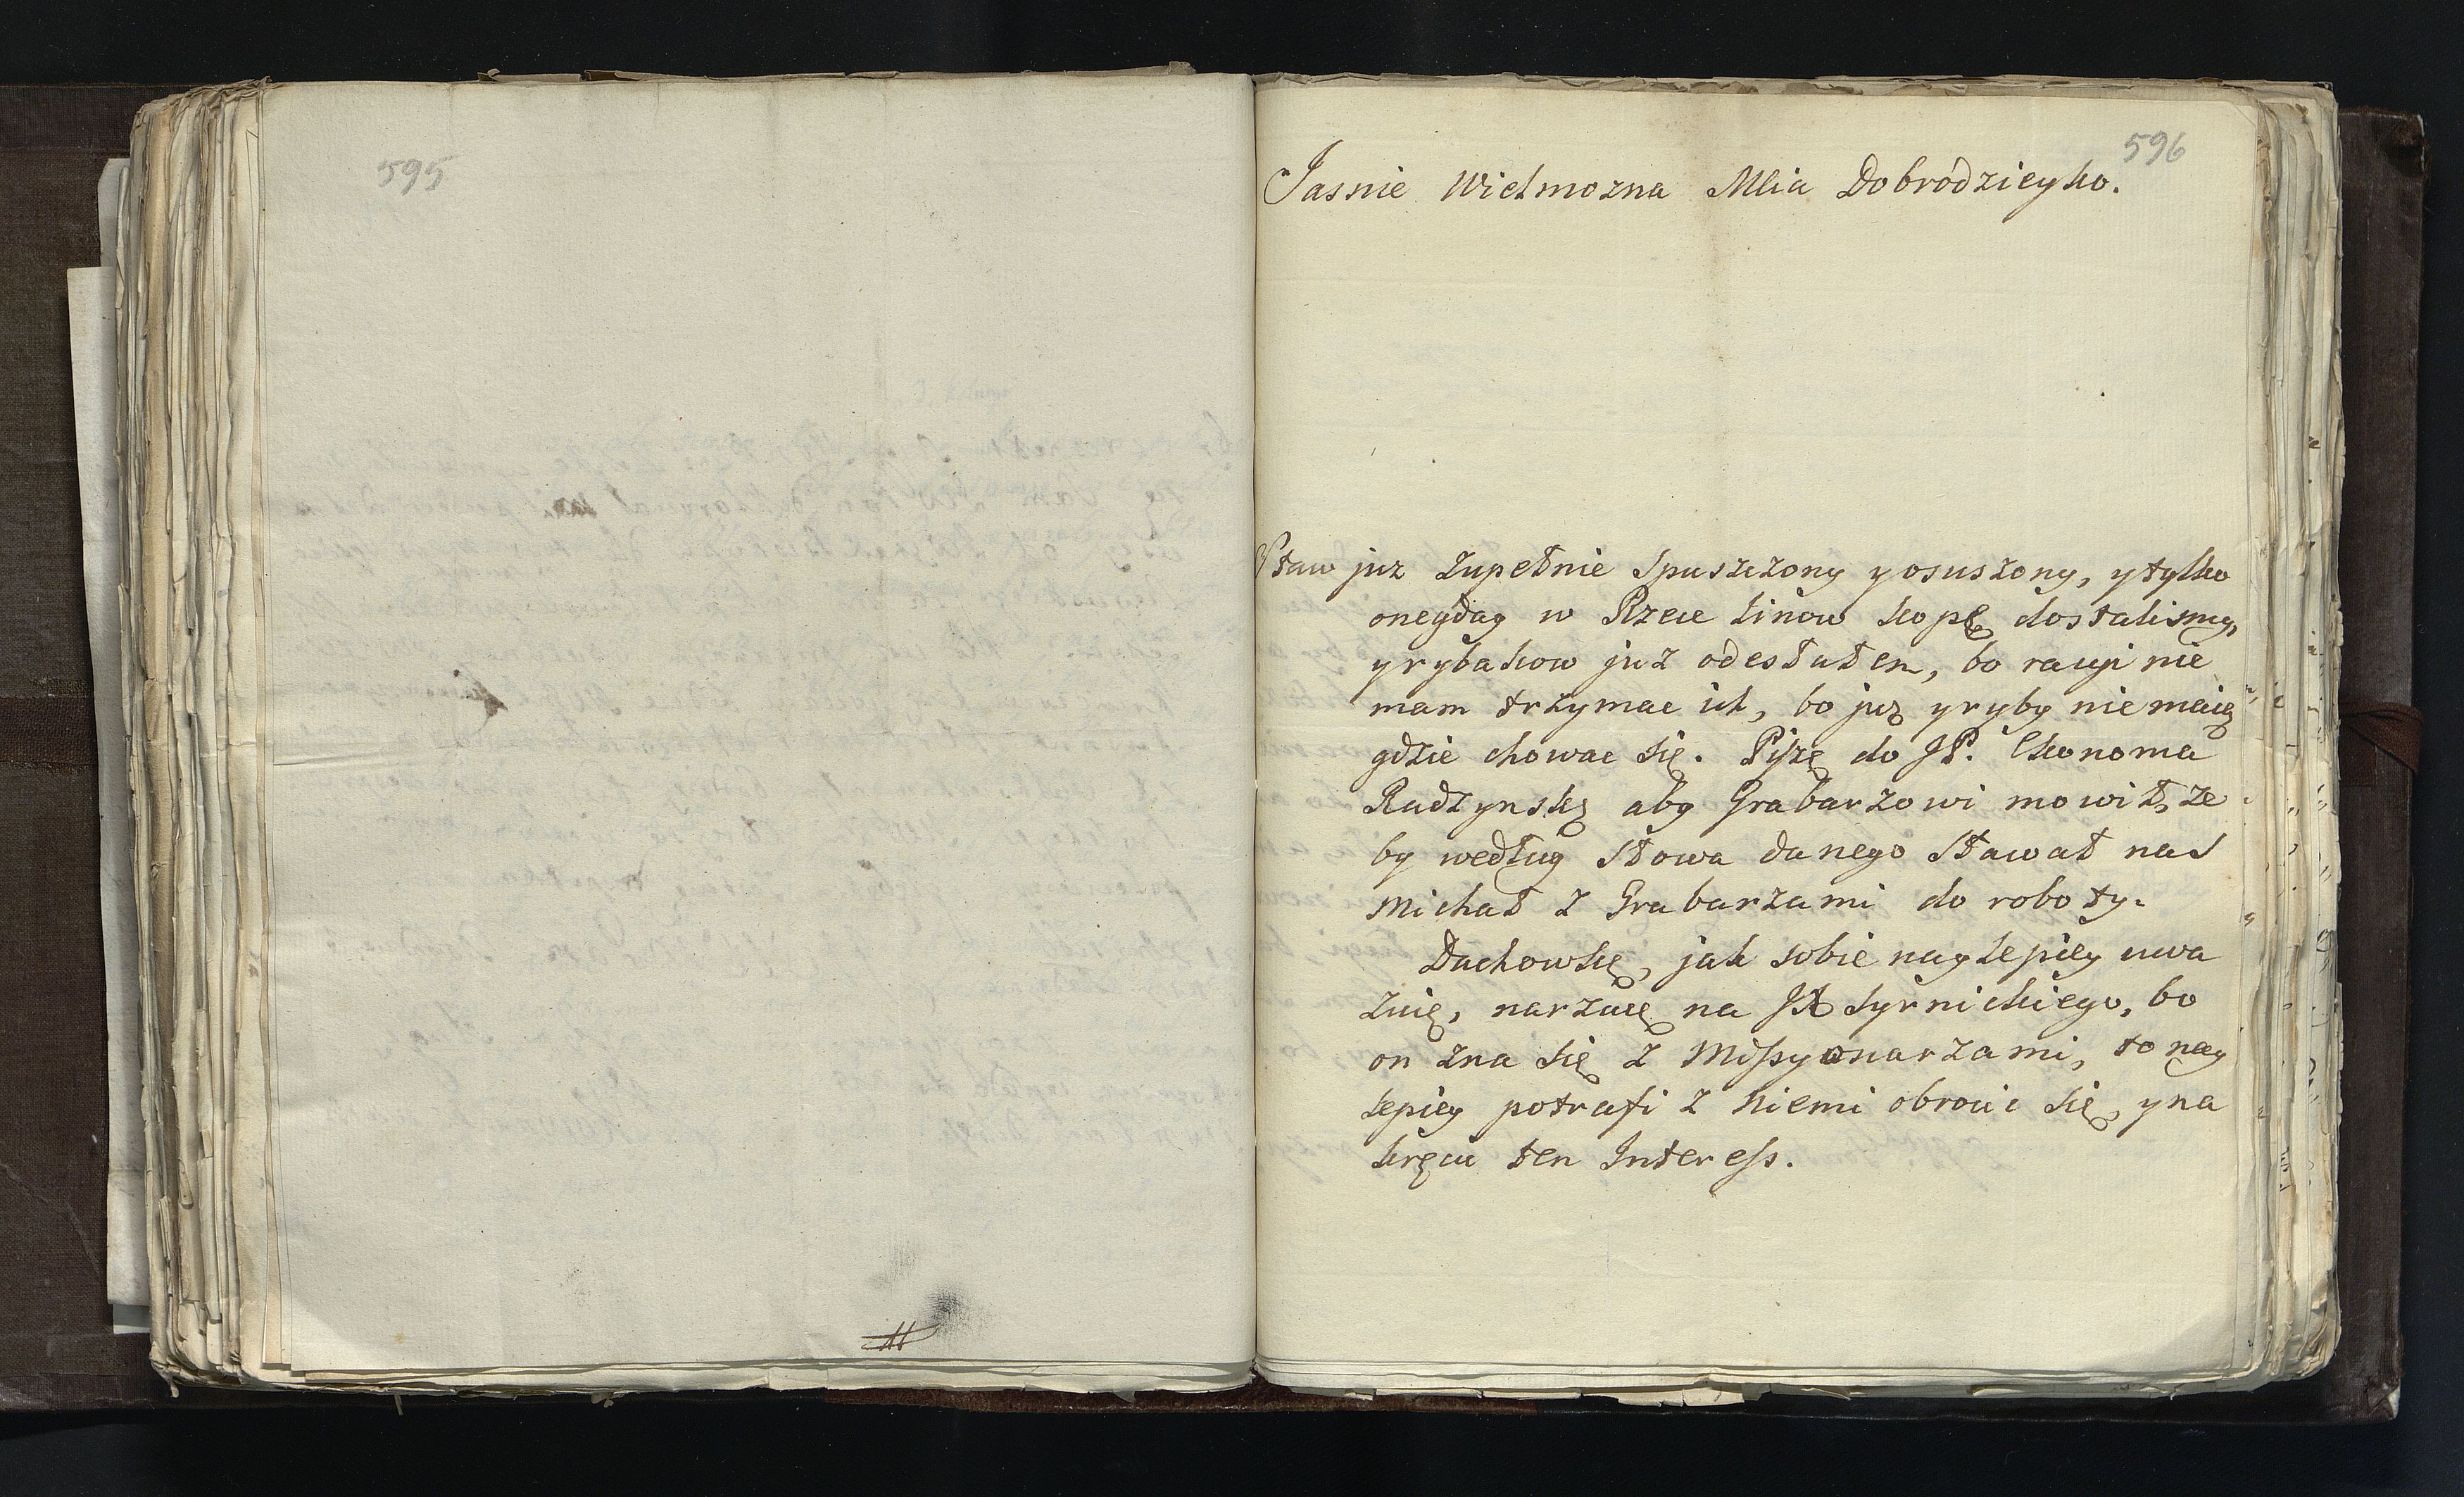 595
596
Jasnie Wielmozna Mlia Dobrodzieyko.
Staw juz zupełnie spuszczony y osuszony, y tylko
onegday w Rzece linow kopę dostalismy,
y rybakow juz odesłałem, bo racyi nie
mam trzymac ich, bo juz y ryby nie maią
gdzie chowac się. Piszę do JP. Ekonoma
Radzynską aby Grabarzowi mowił, ze
by według słowa danego stawał na S
Michał z Grabarzami do roboty.
Dachowkę, jak sobie naylepiey uwa
znię, narzucę na JP Syrnickiego, bo
on zna się z Missyonarzami, to nay
lepiey potrafi z niemi obrocic się, y na
kręcic ten Interess.